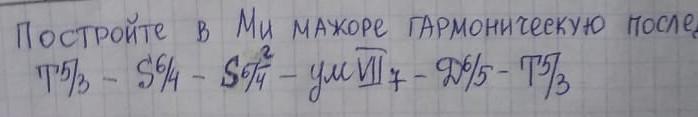 Постройте в Ми мажоре гармоническую послед
Т5/3 - S6/4 - S6/4г - умVII7 - Д6/5 - Т5/3